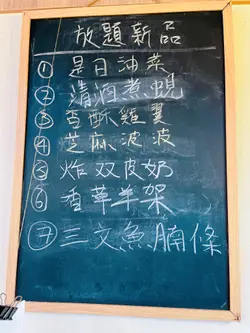 放題新品
① 是日油菜
② 清酒煮蜆
③ 酥雞翼
④ 芝麻波波
⑤ 炸双皮奶
⑥ 香草羊架
⑦ 三文魚腩條